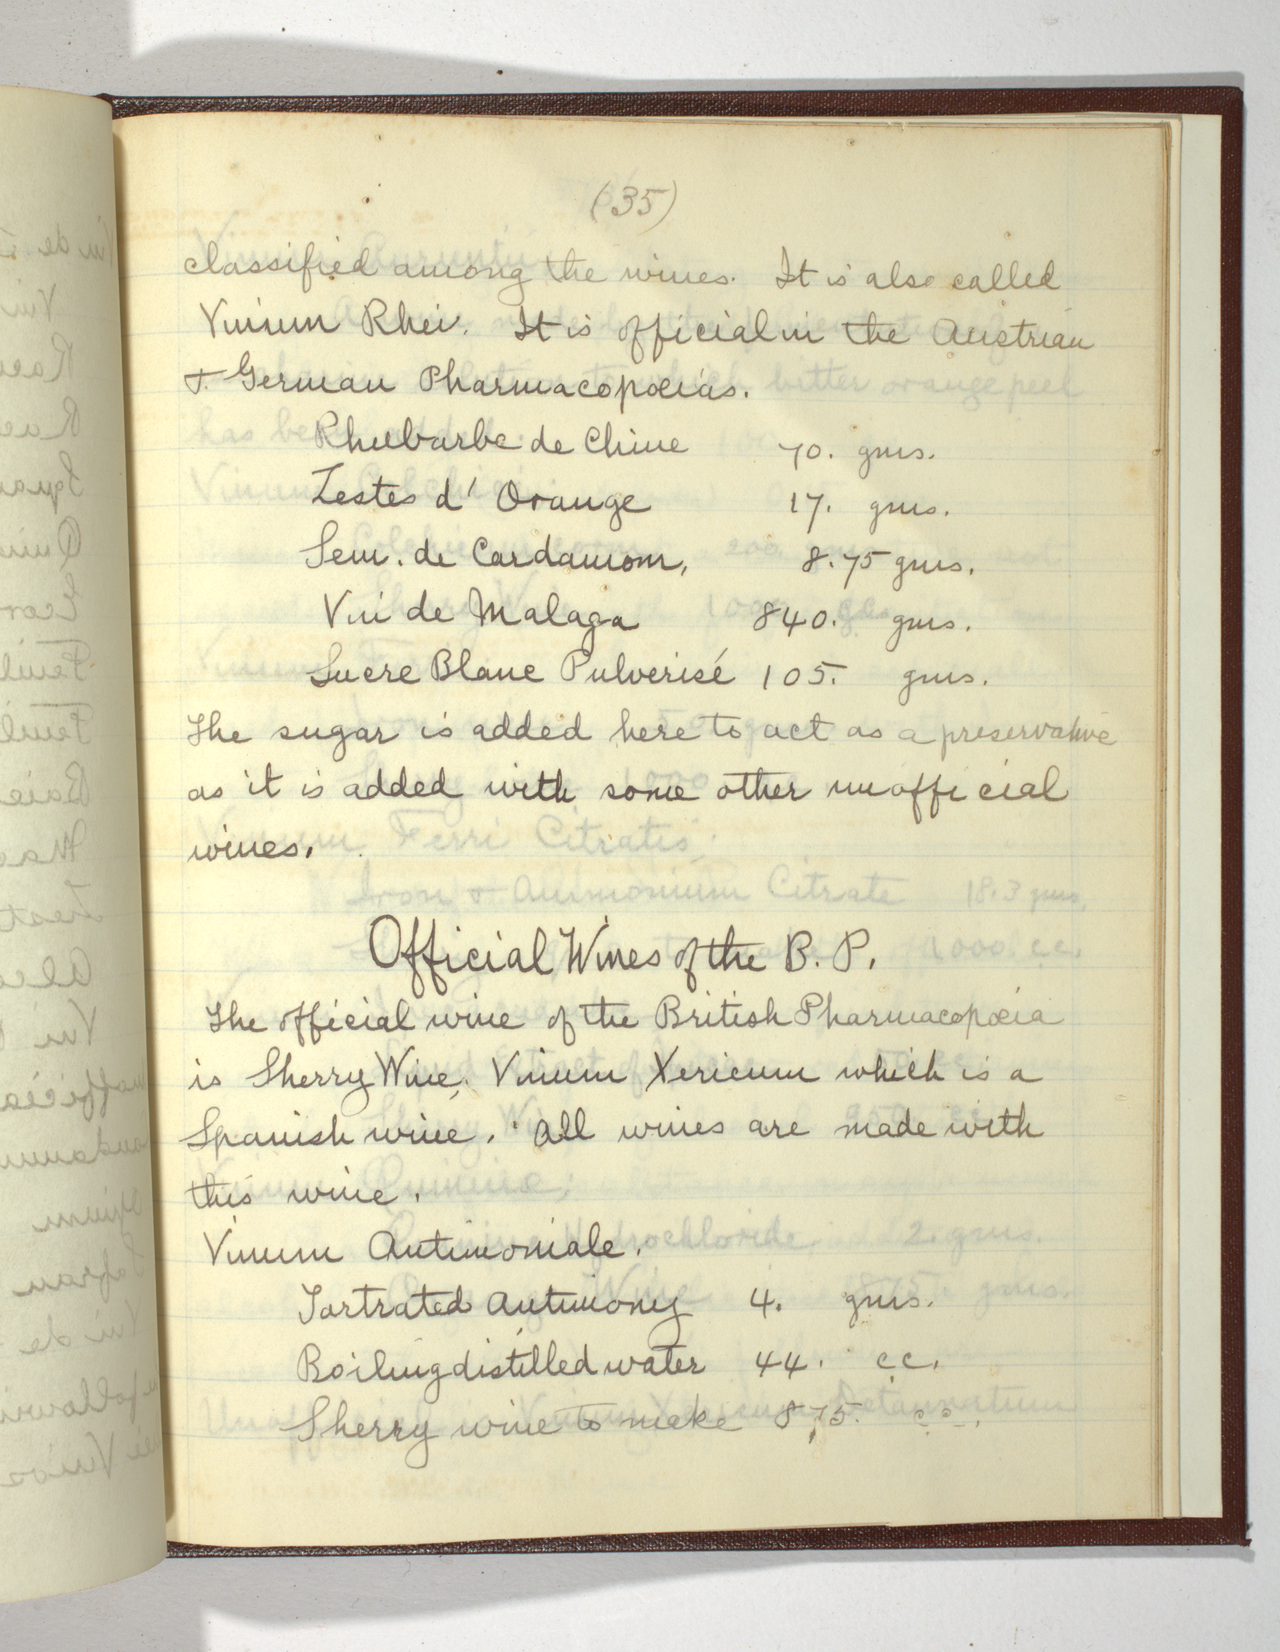 (35)
classified among the wines. It is also called
Vinum Rhei. It is official in the Austrian
& German Pharmacopoeias.
Rhubarbe de Chine 70. gms.
Zestes d'Orange 17. gms.
Sem. de Cardamom, 8.75 gms.
Vin de Malaga 840. gms.
Sucre Blanc Pulverisé 105. gms.
The sugar is added here to act as a preservative
as it is added with some other unofficial
wines.
Official Wines of the B. P.
The official wine of the British Pharmacopoeia
is Sherry Wine, Vinum Xericum which is a
Spanish wine. All wines are made with
this wine.
Vinum Antimoniale.
Tartrated Antimony 4. gms.
Boiling distilled water 44. cc.
Sherry wine to make 875. cc.